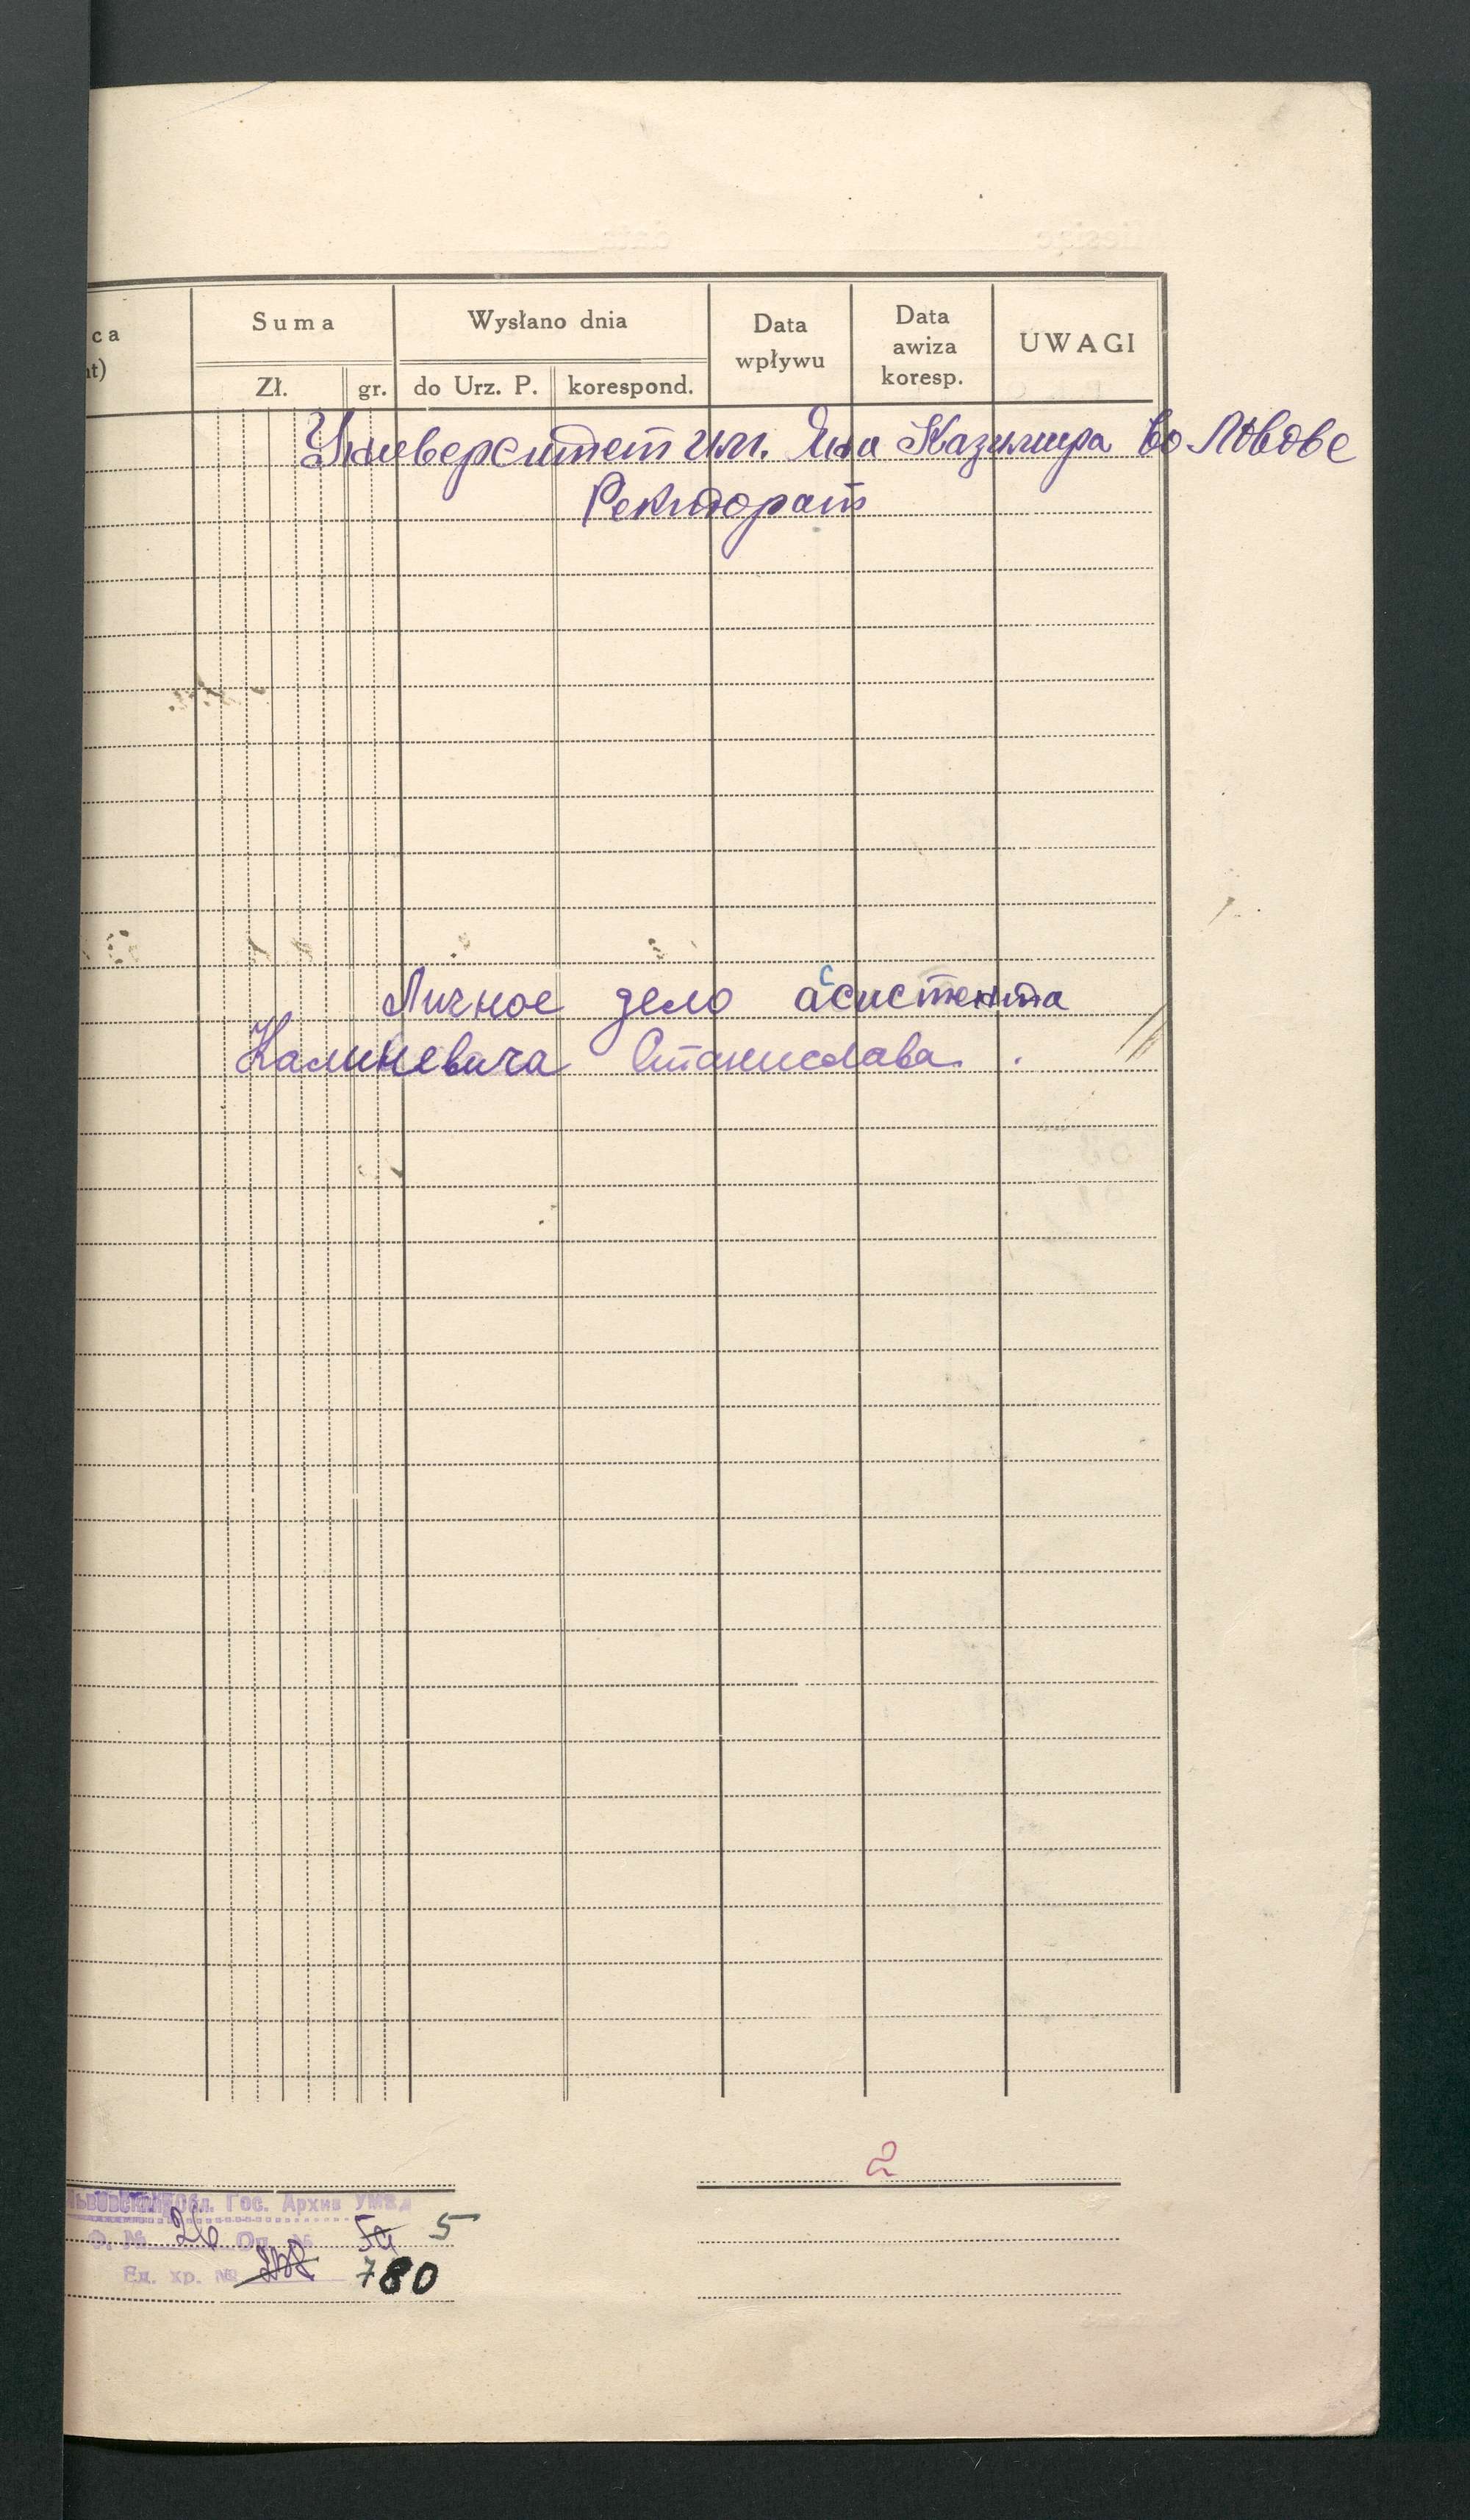 ca
Suma
Wysłano dnia
Data
wpływu
Data
awiza
koresp.
UWAGI
Zł.
gr.
do Urz. P.
korespond.
Университет им. Яна Казимира во Львове
Ректорат
Личное дело ассистента
Калиневича Станислава.
2
Львовский Обл. Гос. Архив УМВД
Ф. № 26 Оп. № 5а 5
Ед. хр. № 780